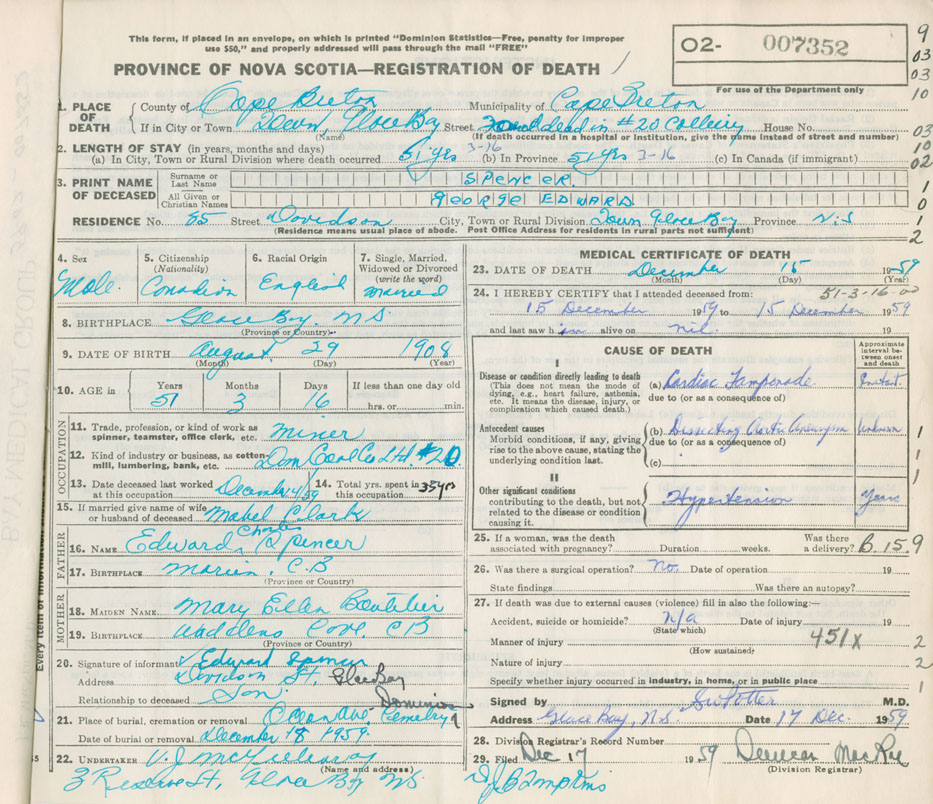 This form, if placed in an envelope, on which is printed "Dominion Statistics—Free, penalty for improper
use $50," and properly addressed will pass through the mail "FREE"
PROVINCE OF NOVA SCOTIA—REGISTRATION OF DEATH
O2- 007352
For use of the Department only
9
03
03
10
1. PLACE OF DEATH
County of Cape Breton Municipality of Cape Breton
If in City or Town Town, Glace Bay Street Found dead in #20 Colliery House No.
(Name) (If death occurred in a hospital or institution, give the name instead of street and number)
03
10
02
2. LENGTH OF STAY (in years, months and days)
(a) In City, Town or Rural Division where death occurred 51 yrs 3-16 (b) In Province 51 yrs 3-16 (c) In Canada (if immigrant)
3. PRINT NAME OF DECEASED
Surname or Last Name SPENCER.
All Given or Christian Names GEORGE EDWARD
1
0
1
2
RESIDENCE No. 55 Street Davidson City, Town or Rural Division Town Glace Bay Province N.S
(Residence means usual place of abode. Post Office Address for residents in rural parts not sufficient)
4. Sex
Male.
5. Citizenship
(Nationality)
Canadian
6. Racial Origin
English
7. Single, Married,
Widowed or Divorced
(write the word)
Married
8. BIRTHPLACE Glace Bay. N.S
(Province or Country)
9. DATE OF BIRTH August 29 1908
(Month) (Day) (Year)
10. AGE in
Years
51
Months
3
Days
16
If less than one day old
hrs. or min.
OCCUPATION
11. Trade, profession, or kind of work as
spinner, teamster, office clerk, etc. Miner
12. Kind of industry or business, as cotten-
mill, lumbering, bank, etc. Dom Coal Co Ltd. #20
13. Date deceased last worked
at this occupation December 14/59
14. Total yrs. spent in
this occupation 35 yrs
15. If married give name of wife
or husband of deceased Mabel Clark
FATHER
16. NAME Edward Charles Spencer
17. BIRTHPLACE Marien, C.B
(Province or Country)
MOTHER
18. MAIDEN NAME Mary Ellen Boutilier
19. BIRTHPLACE Waddens Cove. CB
(Province or Country)
20. Signature of informant Edward Spencer
Address Davidson St, Glace Bay
Relationship to deceased Son.
21. Place of burial, cremation or removal Ocean Ave. Cemetery Dominion
Date of burial or removal December 18 1959.
22. UNDERTAKER V. J. McGillivray
(Name and address)
3 Reserve St, Glace Bay NS
Every item of information
MEDICAL CERTIFICATE OF DEATH
23. DATE OF DEATH December 15 1959
(Month) (Day) (Year)
51-3-16-00
24. I HEREBY CERTIFY that I attended deceased from:
15 December 1959 to 15 December 1959
and last saw him alive on nil. 19
CAUSE OF DEATH
Approximate
interval be-
tween onset
and death
I
Disease or condition directly leading to death
(This does not mean the mode of
dying, e.g., heart failure, asthenia,
etc. It means the disease, injury, or
complication which caused death.)
(a) Cardiac Tamponade. Instant.
due to (or as a consequence of)
Antecedent causes
Morbid conditions, if any, giving
rise to the above cause, stating the
underlying condition last.
(b) Dissecting Aortic Aneurysm Unknown
due to (or as a consequence of)
(c)
1
1
II
Other significant conditions
contributing to the death, but not
related to the disease or condition
causing it.
Hypertension Years
1
25. If a woman, was the death
associated with pregnancy? Duration weeks. Was there
a delivery? B. 15.9
26. Was there a surgical operation? No. Date of operation 19
State findings Was there an autopsy?
27. If death was due to external causes (violence) fill in also the following:—
Accident, suicide or homicide? N/a Date of injury 19
(State which)
Manner of injury 451X 2
(How sustained)
Nature of injury 2
Specify whether injury occurred in industry, in home, or in public place 1
Signed by M.D.
Address Glace Bay, N.S. Date 17 Dec. 1959
28. Division Registrar's Record Number
29. Filed Dec 17 1959 Duncan MacRae
(Division Registrar)
D/JB Tompkins